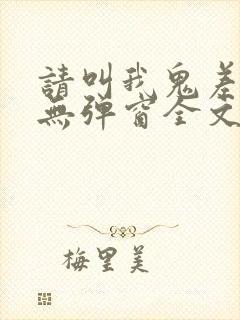 請叫我鬼差
無彈窗全文
梅里美